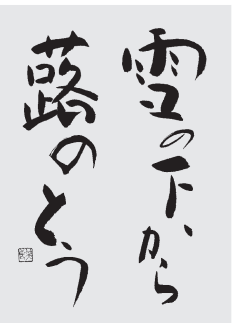 雪の下から
蕗のとう